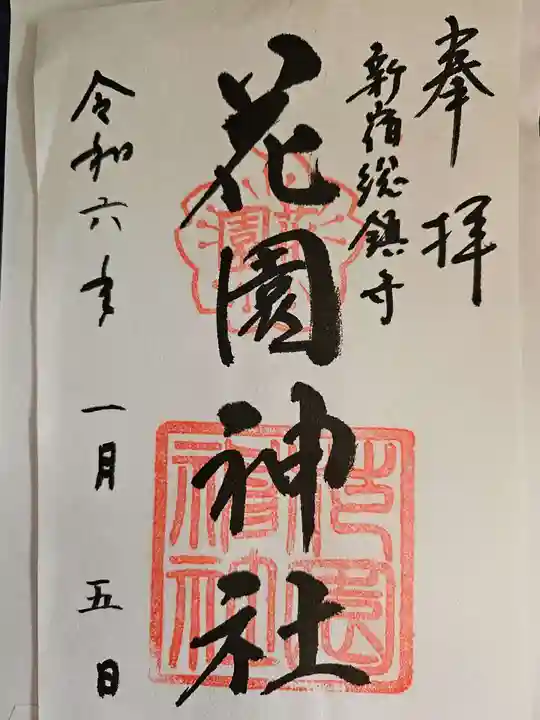 奉拝
新宿総鎮守
花園神社
令和六年
一月
五日
花園神社